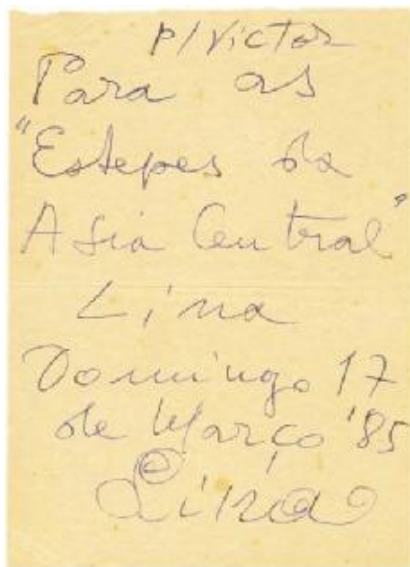 P/Victor
Para as
"Estepes da
Asia Central"
Lina
Domingo 17
de Março '85
Lina